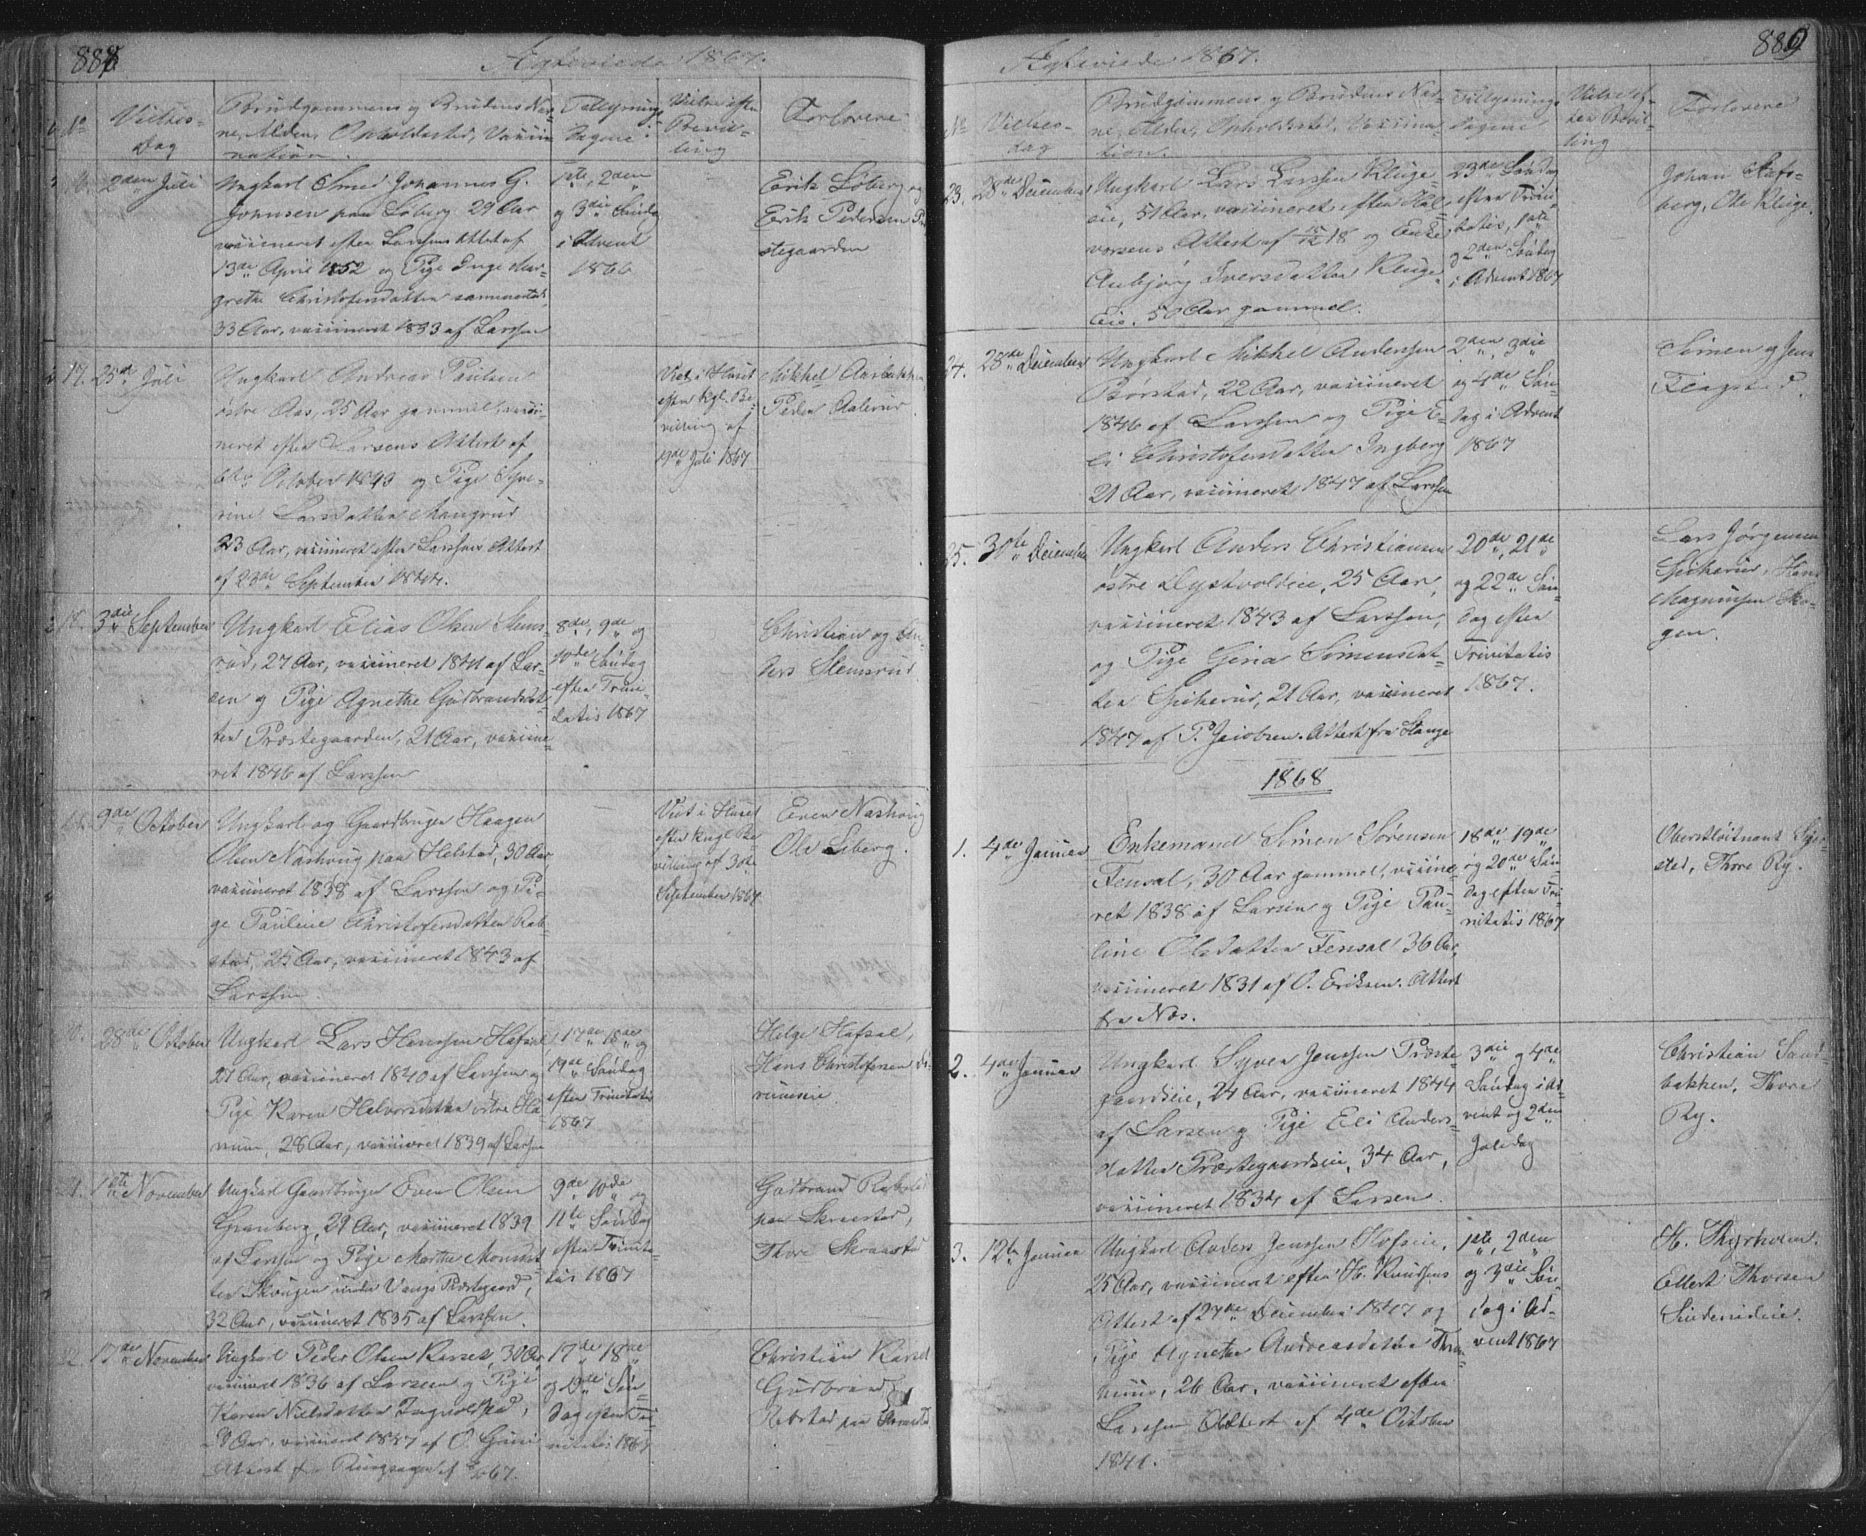 888
Ægteviede 1867.
No
Vielses-
Dag
Brudgommens og Brudens Nav-
ne, Alder, Opholdssted, Vaccii-
nation.
Tillysnings
Dagene
Vielse efter
Bevil-
ling
Forlovere
2den Juli
Ungkarl Smed Johannes G.
Johnsen paa Loberg 29 Aar
vaciineret efter Larssens Attest af
13de April 1852 og Pige Inge Mar-
grethe Christofersdatter sammesteds,
33 Aar, vaciineret 1833 af Larssen
1ste, 2den
og 3die Søndag
i Advent
1866
Erik Loberg og
Erik Pedersen Præ
stegaarden
17. 25de Juli
Ungkarl Andreas Paulsen
østre Aas, 25 Aar gammel, vacii-
neret efter Larsens Attest af
October 1843 og Pige Seve-
rine Larsdatter
23 Aar, vaciineret efter Larssens Attest
af 23de September 1844.
Viet i Huset
efter Kgl. Be-
villing af
Juli 1867
Mikkel
Peder Aalerud.
18. 3die September
Ungkarl Elias Olsen Slems-
rud, 27 Aar, vaciineret 1841 af Lar-
sen og Pige Agnethe Gudbrandsdat-
ter Præstegaarden, 21 Aar, vaciine-
ret 1846 af Larssen
8de, 9de og
10de Søndag
efter Trini-
tatis 1867
Christian og An-
ders Slemsrud
9de October
Ungkarl og Gaardbruger Haagen
Olsen Nashoug paa Helstad, 30 Aar
vaciineret 1838 af Larssen og Pi-
ge Pauline Christofersdatter Rab-
stad, 25 Aar, vaciineret 1843 af
Larssen.
Viet i Huset
efter Kngl. Be-
villing af 3die
September 1867
Even Nashoug
Ole Liberg.
28de October
Ungkarl Lars Hanssen Hafsal
27 Aar, vaciineret 1840 af Larssen og
Pige Karen Halvorsdatter østre Ha
mum, 28 Aar, vaciineret 1839 af Larsen
17de, 18de og
19de Søndag
efter Trinitatis
1867
Helge Hafsal,
Hans Christofersen
November
Ungkarl Gaardbruger Even Olsen
Granberg, 29 Aar, vaciineret 1839
af Larssen og Pige Marthe
ter Skougen under Vangs Præstegaard,
32 Aar, vaciineret 1835 af Larssen.
9de, 10de og
11te Søndag
efter Trinita-
tis 1867
Gudbrand Rabstad
paa Skraastad,
Thore Skraastad
November
Ungkarl Peder Olsen Karset, 30 Aar
vaciineret 1836 af Larsen og Pige
Karen Nielsdatter Ingvoldstad,
Aar, vaciineret 1847 af O.
Attest fra Ringsager af
17de, 18de
og 19de Søn-
dag efter Tri-
nitatis 1867
Christian Karset
Gudbrand
Rabstad paa Skraastad
889
Ægteviede 1867.
No
Vielses-
dag
Brudgommens og Brudens Nav-
ne, Alder, Opholdssted, Vaciina-
tion.
Tillysnings
dagene
Vielse ef-
ter Bevil-
ling
Forlovere
23. 28de Deiember
Ungkarl Lars Larssen Kluge-
eie, 51 Aar, vaciineret efter Hal-
vorsens Attest af 18 og Enke
Anbjørg Iversdatter Kluge-
Eie. 50 Aar gammel.
23de Søndag
efter Trini-
tatis, 1ste
og 2den Søndag
i Advent 1867
Johan Stafs-
berg, Ole Kluge.
24. 28de Deiember
Ungkarl Mikkel Anderssen
Børstad, 22 Aar, vaciineret
1846 af Larssen og Pige E-
li Christofersdatter Ingberg
21 Aar, vaciineret 1847 af Larssen
2den, 3die
og 4de Søn-
dag i Advent
1867
Simen og Jens
Flagstad.
25. 30te Deiember
Ungkarl Anders Christiansen
østre Dystvoldeie, 25 Aar,
vaciineret 1843 af Larssen,
og Pige Gina Simensdat-
ter Spikerud, 21 Aar, vaciineret
1847 af P. Jacobsen. Attest fra Stange
20de, 21de
og 22de Søn-
dag efter
Trinitatis
1867.
Lars Jørgensen
Spikerud, Hans
Magnussen Sko-
gen.
1868
1. 4de Januar
Enkemand Simen Sørensen
Fensal, 30 Aar gammel, vaciine-
ret 1838 af Larsen og Pige Pau-
line Olsdatter Fensal 36 Aar,
vaciineret 1831 af O. Eriksen. Attest
fra Næs.
18de, 19de
og 20de Søn-
dag efter Tri-
nitatis 1867
Oberstløitnant Sejer-
sted, Thore Ry.
2. 4de Januar
Ungkarl Syver Jenssen Præste-
gaardseie, 24 Aar, vaciineret 1844
af Larsen og Pige Eli Anders-
datter Præstegaardseie, 34 Aar,
vaciineret 1834 af Larsen.
3die og 4de
Søndag i Ad-
vent og 2den
Juledag
Christian Sand-
bakken, Thore
Ry.
3. 12te Januar
Ungkarl Anders Jenssen Hofseie,
25 Aar, vaciineret efter H. Knudsens
Attest af 27de Deiember 1847 og
Pige Agnethe Andreasdatter
26 Aar, vaciineret efter
Larssens Attest af 4de October
1841.
1ste, 2den
og 3die Søn-
dag i Ad-
vent 1867
H. Thyrholm.
Ellert Thorsen
Lindersideie.